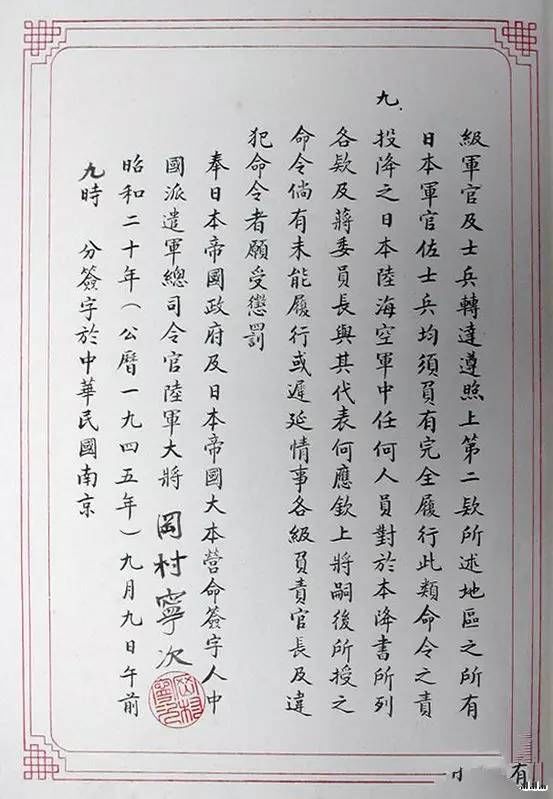 級軍官及士兵轉達遵照上第二欵所述地區之所有
日本軍官佐士兵均須負有完全履行此類命令之責
九、
投降之日本陸海空軍中任何人員對於本降書所列
各欵及蔣委員長與其代表何應欽上將嗣後所授之
命令倘有未能履行或遲延情事各級負責官長及違
犯命令者願受懲罰
奉日本帝國政府及日本帝國大本營命簽字人中
國派遣軍總司令官陸軍大將 岡村寧次
昭和二十年（公曆一九四五年）九月九日午前
九時 分簽字於中華民國南京
有